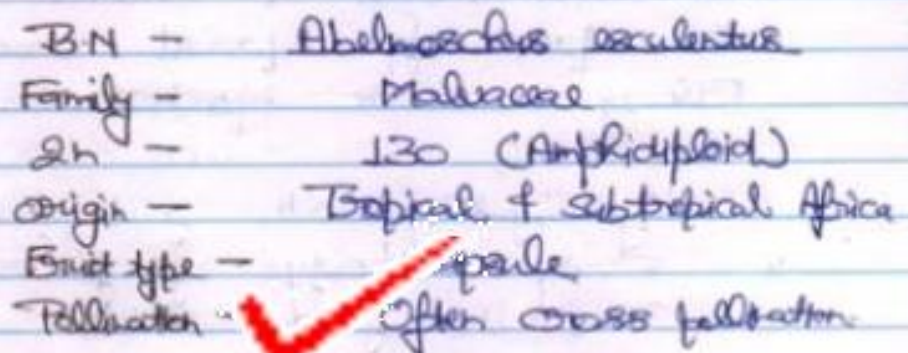 BN - Abelmoschus esculentus
Family - Malvaceae
2n - 130 (Amphidiploid)
origin - Tropical & Subtropical Africa
Fruit type -
Pollination - Often cross pollination